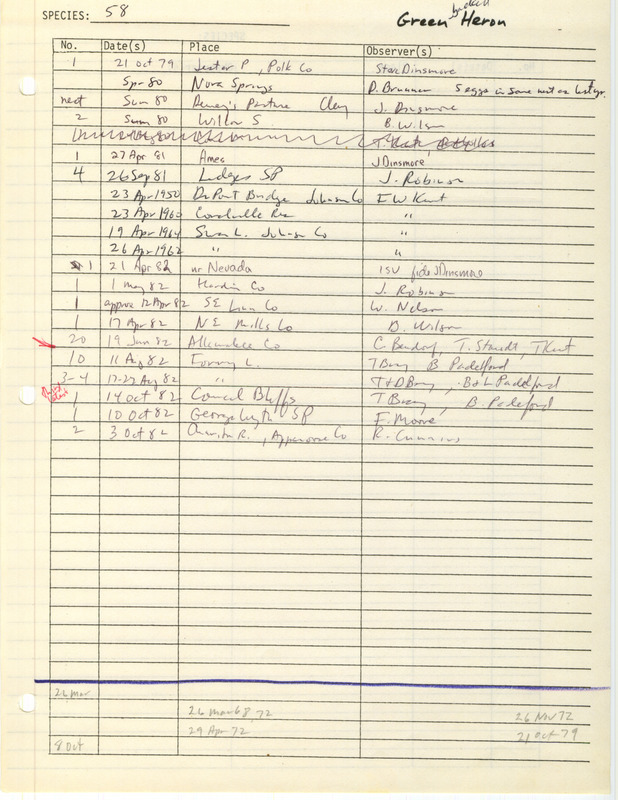 SPECIES: 58
Green backed Heron
No. Date(s) Place Observer(s)
1 21 Oct 79 Jester P, Polk Co Steve Dinsmore
Spr 80 Nora Springs D. Brunner 5 eggs in same nest as last yr.
nest Sum 80 Dewey's Pasture Clay J. Dinsmore
2 Summ 80 Willow S B. Wilson
1 27 Apr 81 Ames J Dinsmore
4 26 Sep 81 Ledges SP J. Robinson
23 Apr 1950 DuPont Bridge Johnson Co F W Kent
23 Apr 1960 Coralville Res "
19 Apr 1964 Swan L. Johnson Co "
26 Apr 1962 " "
1 21 Apr 82 nr Nevada ISU fide J Dinsmore
1 1 May 82 Hardin Co J. Robinson
1 approx 12 Apr 82 SE Linn Co W. Nelson
1 17 Apr 82 NE Mills Co B. Wilson
20 19 Jun 82 Allamakee Co C. Bendorf, T. Staudt, T Kent
10 11 Aug 82 Forney L. T Bray B Padelford
3-4 17-27 Aug 82 " T & D Bray, B & L Padelford
1 14 Oct 82 Council Bluffs T Bray, B. Padelford
1 10 Oct 82 George Wyth SP F. Moore
2 3 Oct 82 Chariton R., Appanoose Co R. Cummins
26 Mar
26 Mar 68 72 26 Nov 72
29 Apr 72 21 Oct 79
8 Oct